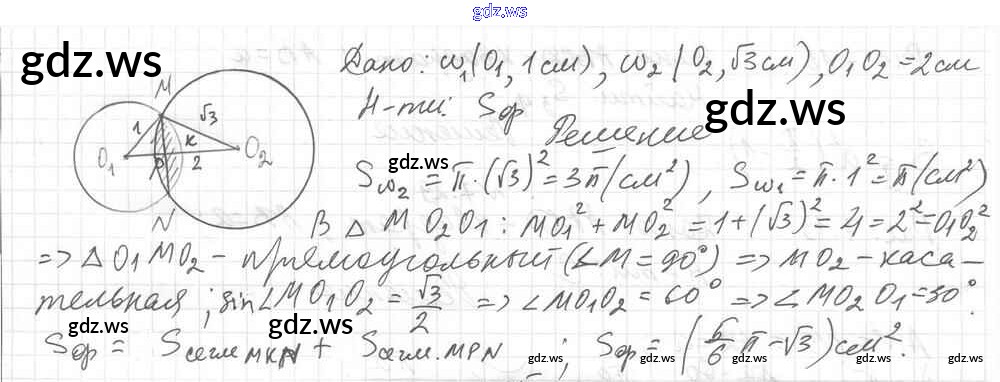 gdz.ws
gdz.ws
Дано: ω₁(O₁, 1см), ω₂(O₂, √3см), O₁O₂ = 2см
gdz.ws
Н-ти: Sφ
Решение
M
√3
1
K
O₁
P
2
O₂
N
gdz.ws
Sω₂ = π · (√3)² = 3π(см²), Sω₁ = π · 1² = π(см²)
В △ M O₂O₁: MO₁² + MO₂² = 1 + (√3)² = 4 = 2² = O₁O₂²
=> △ O₁MO₂ - прямоугольный (∠M = 90°) => MO₂ - каса-
тельная; sin∠MO₁O₂ = √3/2 => ∠MO₁O₂ = 60° => ∠MO₂O₁ = 30°.
gdz.ws
gdz.ws
Sφ = Sсегм MKN + Sсегм. MPN; Sφ = (5/6 π - √3) см².
gdz.ws gdz.ws gdz.ws gdz.ws